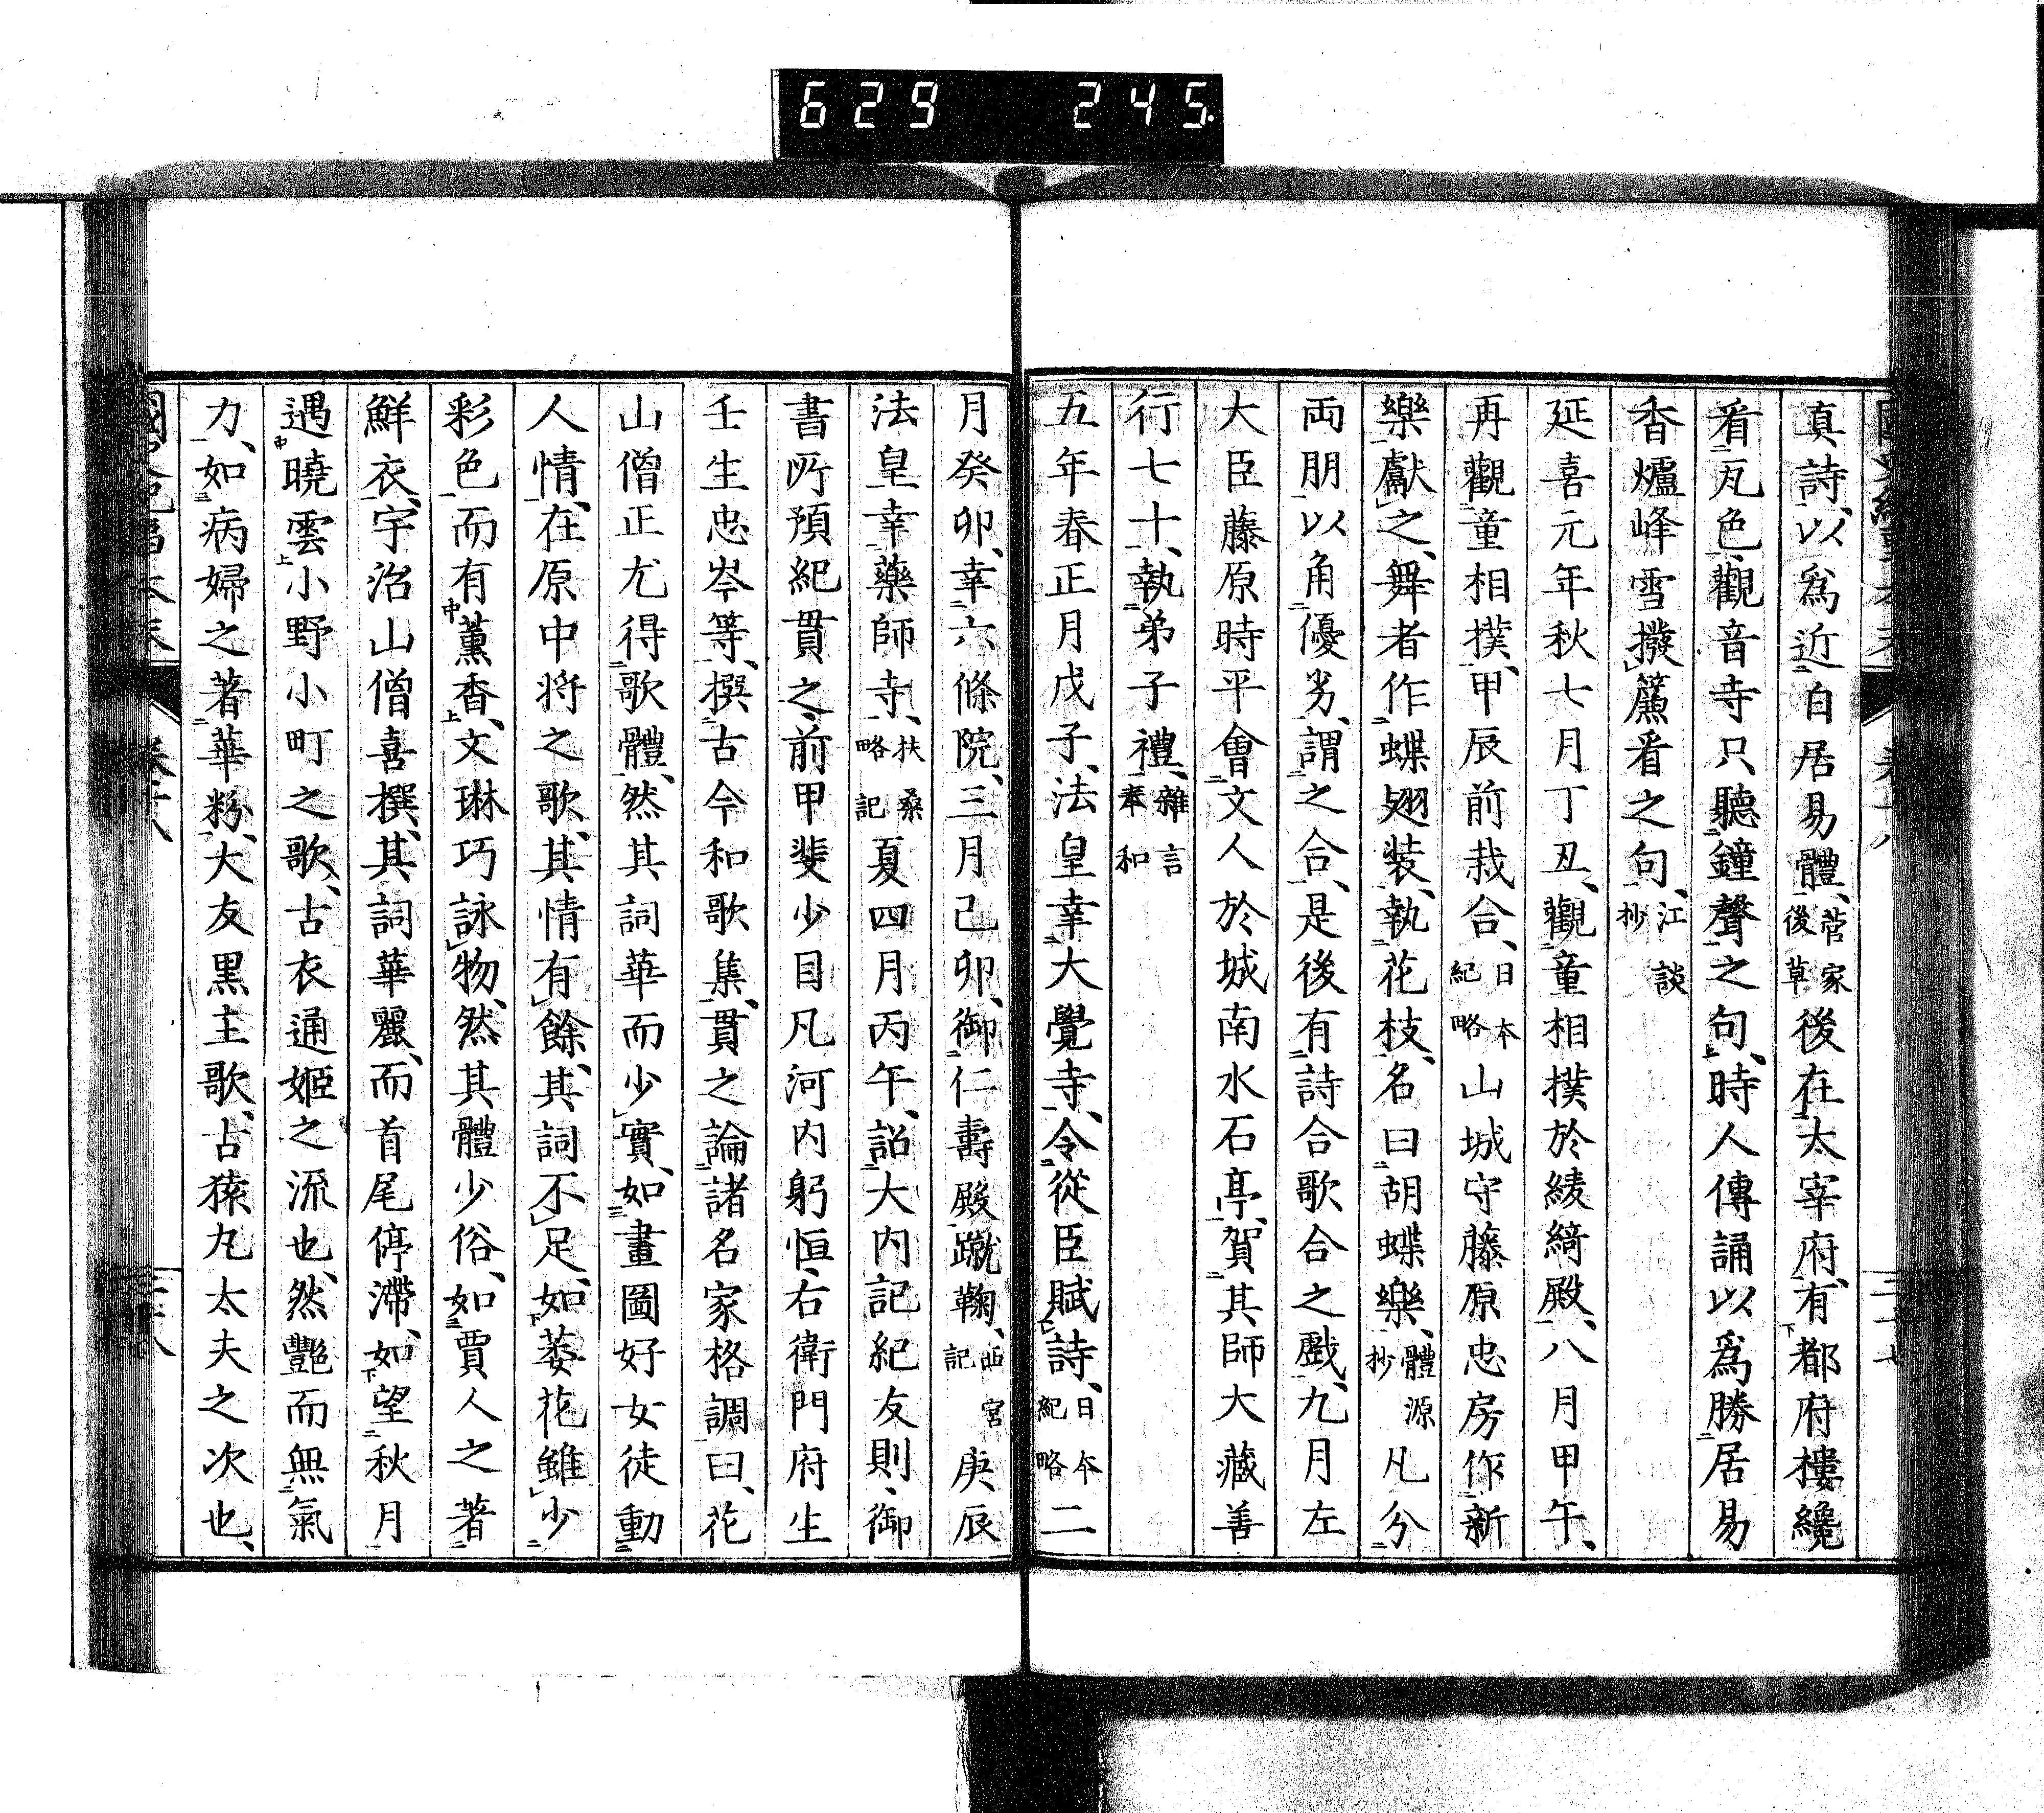 629 245
真詩、以爲近白居易體、菅家後草後在太宰府、有都府樓纔
看瓦色、觀音寺只聽鐘聲之句、時人傳誦以爲勝居易
香爐峰雪撥簾看之句、江談抄
延喜元年秋七月丁丑、觀童相撲於綾綺殿、八月甲午、
再觀童相撲、甲辰前栽合、日本紀略山城守藤原忠房作新
樂獻之、舞者作蝶翅裝、執花枝、名曰胡蝶樂、體源抄凡分
両朋以角優劣、謂之合、是後有詩合歌合之戲、九月左
大臣藤原時平會文人於城南水石亭、賀其師大藏善
行七十、執弟子禮、雜言奉和
五年春正月戊子、法皇幸大覺寺、令從臣賦詩、日本紀略二
月癸卯、幸六條院、三月己卯、御仁壽殿蹴鞠、西宮記庚辰
法皇幸藥師寺、扶桑略記夏四月丙午、詔大内記紀友則、御
書所預紀貫之、前甲斐少目凡河内躬恒、右衛門府生
壬生忠岑等、撰古今和歌集、貫之論諸名家格調曰、花
山僧正尤得歌體、然其詞華而少實、如畫圖好女徒動
人情、在原中將之歌、其情有餘、其詞不足、如萎花雖少
彩色而有薰香、文琳巧詠物、然其體少俗、如賈人之著
鮮衣、宇治山僧喜撰、其詞華麗、而首尾停滯、如望秋月
遇曉雲小野小町之歌、古衣通姬之流也、然艷而無氣
力、如病婦之著華粉、大友黑主歌、古猿丸太夫之次也、